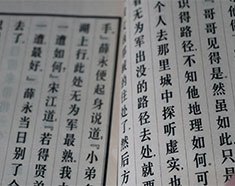 哥哥见得是然虽如此
识得路径不知他地理如何可
个人去那里城中探听虚实也
看无为军出没的路径去处就要
的住处了然后方
手』薛永便起身说道『小弟
湖上行此处无为军最熟我
一遭如何』宋江道『若得贤
一遭最好』薛永当日别了
去了